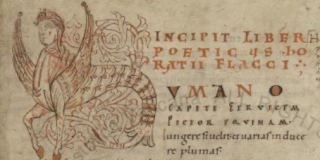 INCIPIT LIBER
POETICUS HO
RATII FLACCI
UMANO
CAPITI CERVICEM
PICTOR EQUINAM
iungere si velit & varias induce
re plumas